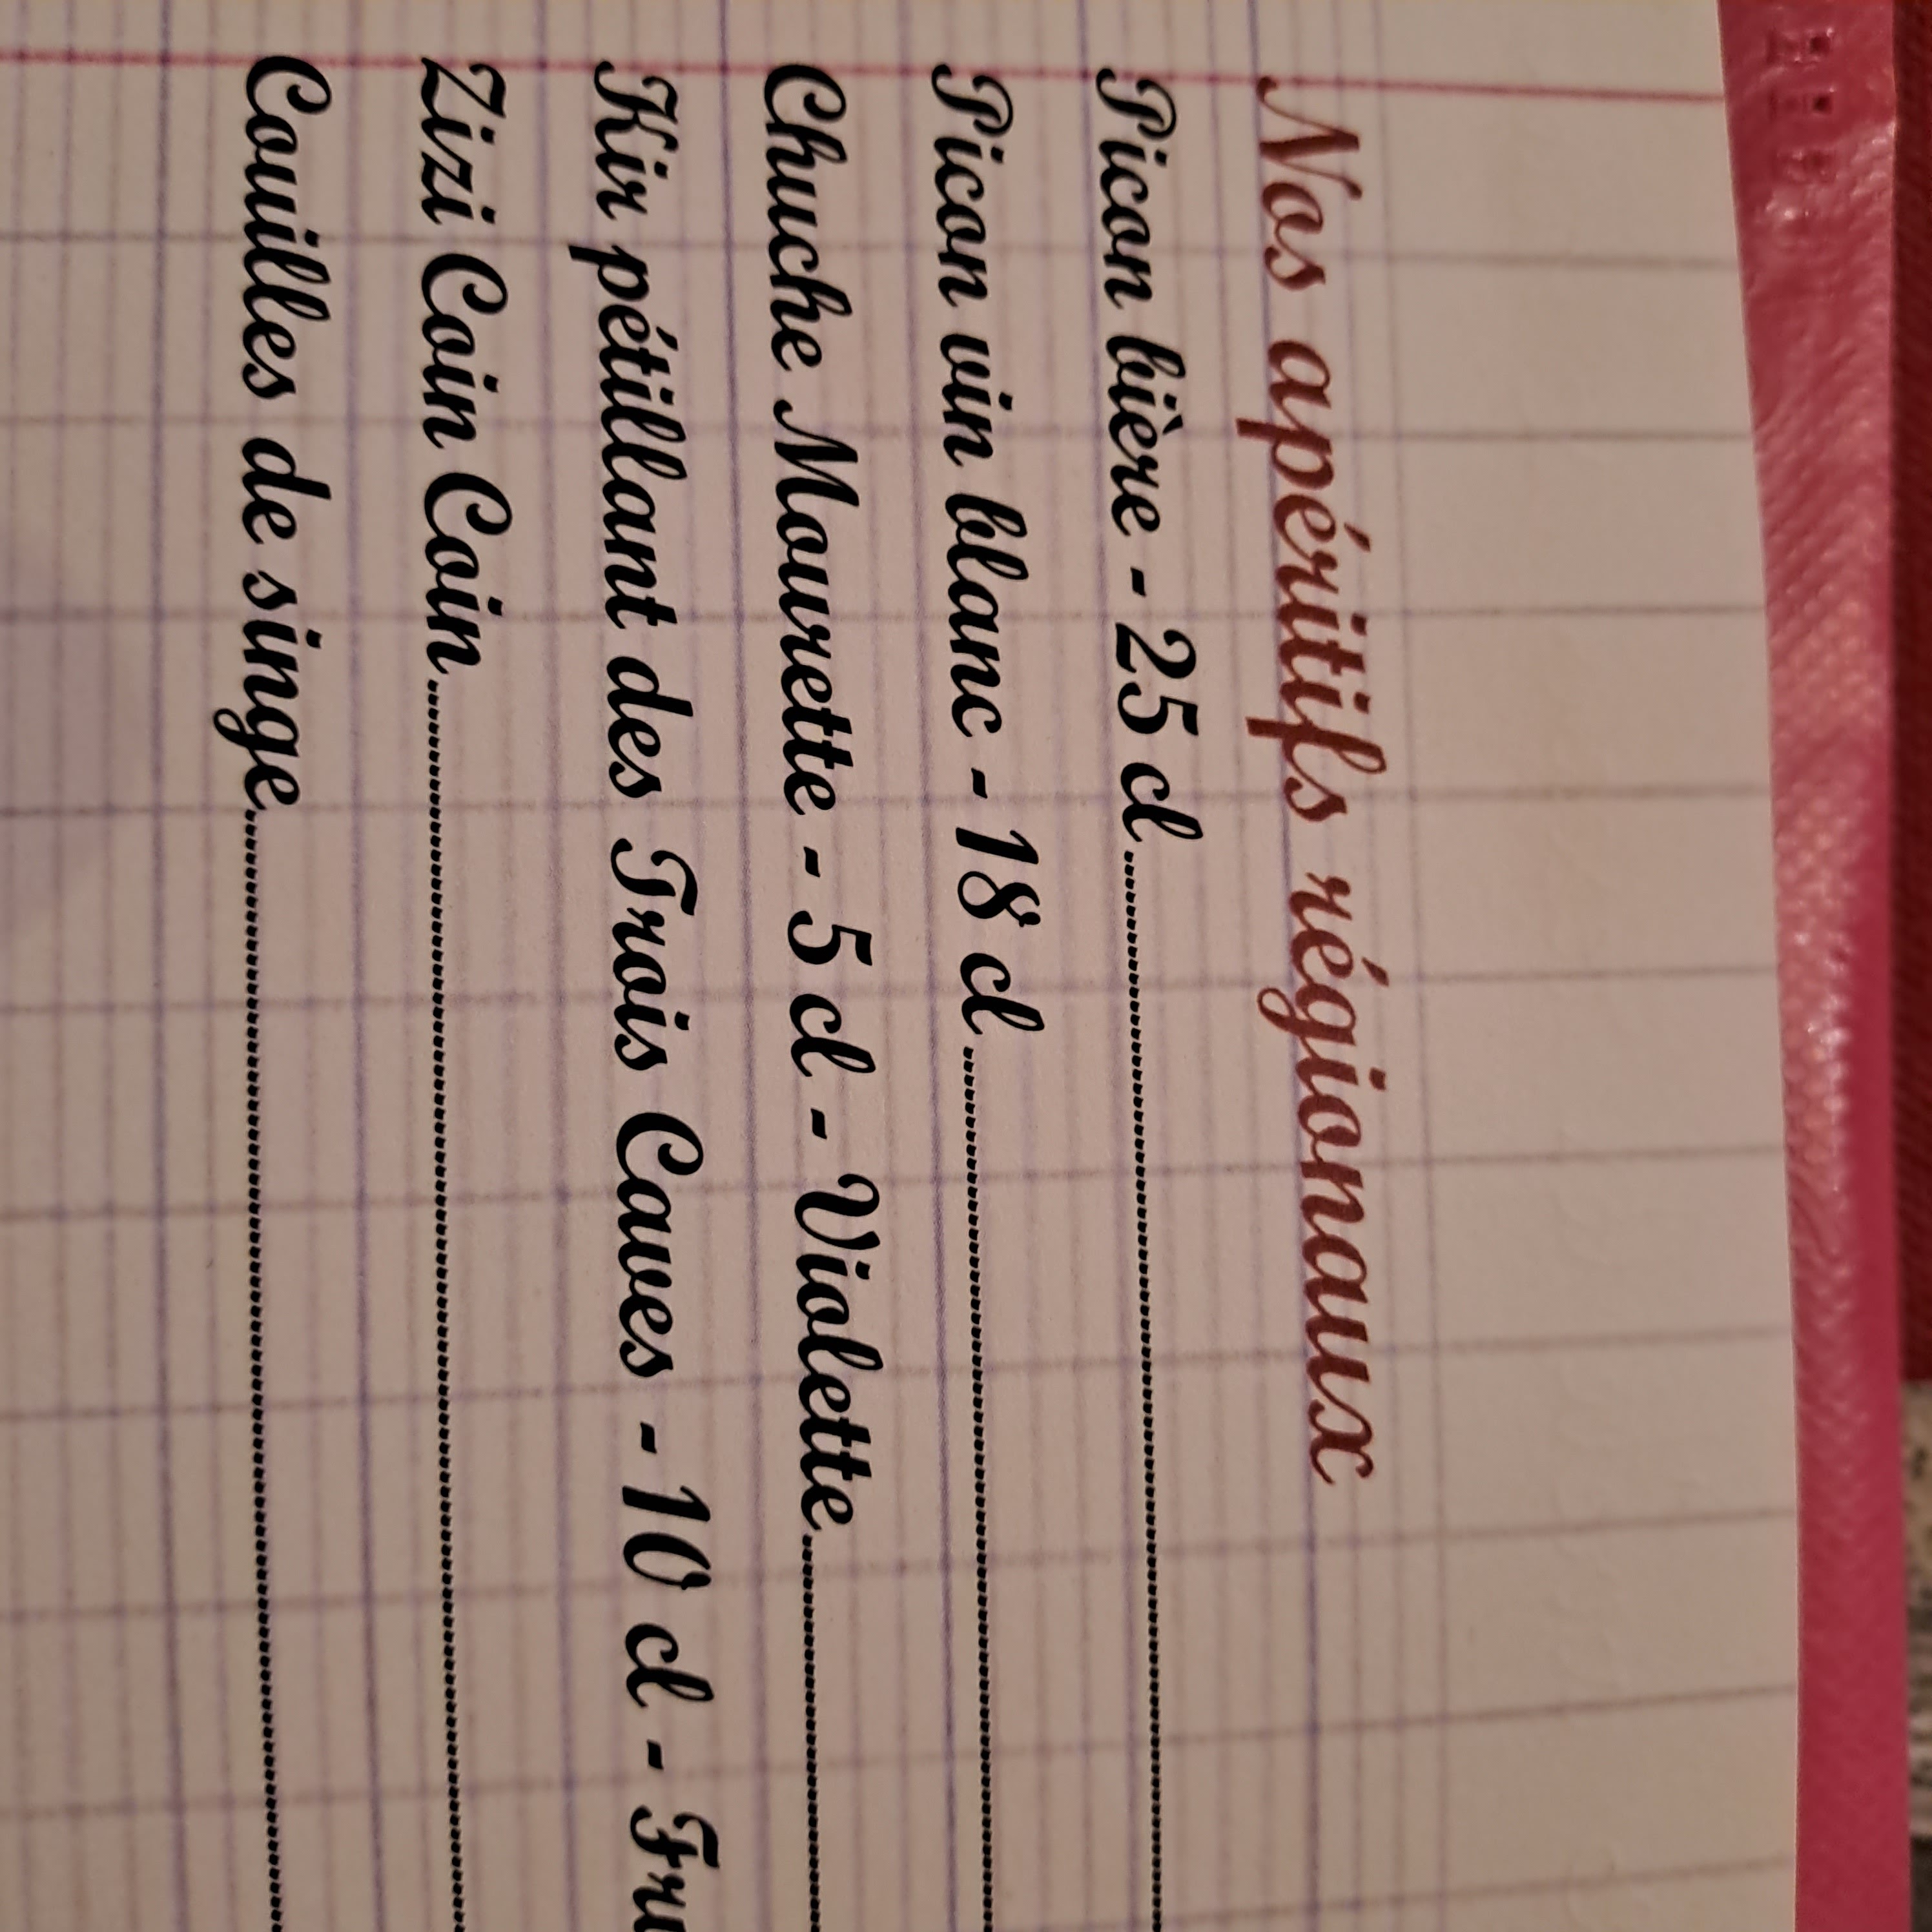 Nos apéritifs régionaux
Picon bière - 25 cl
Picon vin blanc - 18 cl
Chuche Mourette - 5 cl - Violette
Kir pétillant des Trois Caves - 10 cl -
Zizi Coin Coin
Couilles de singe